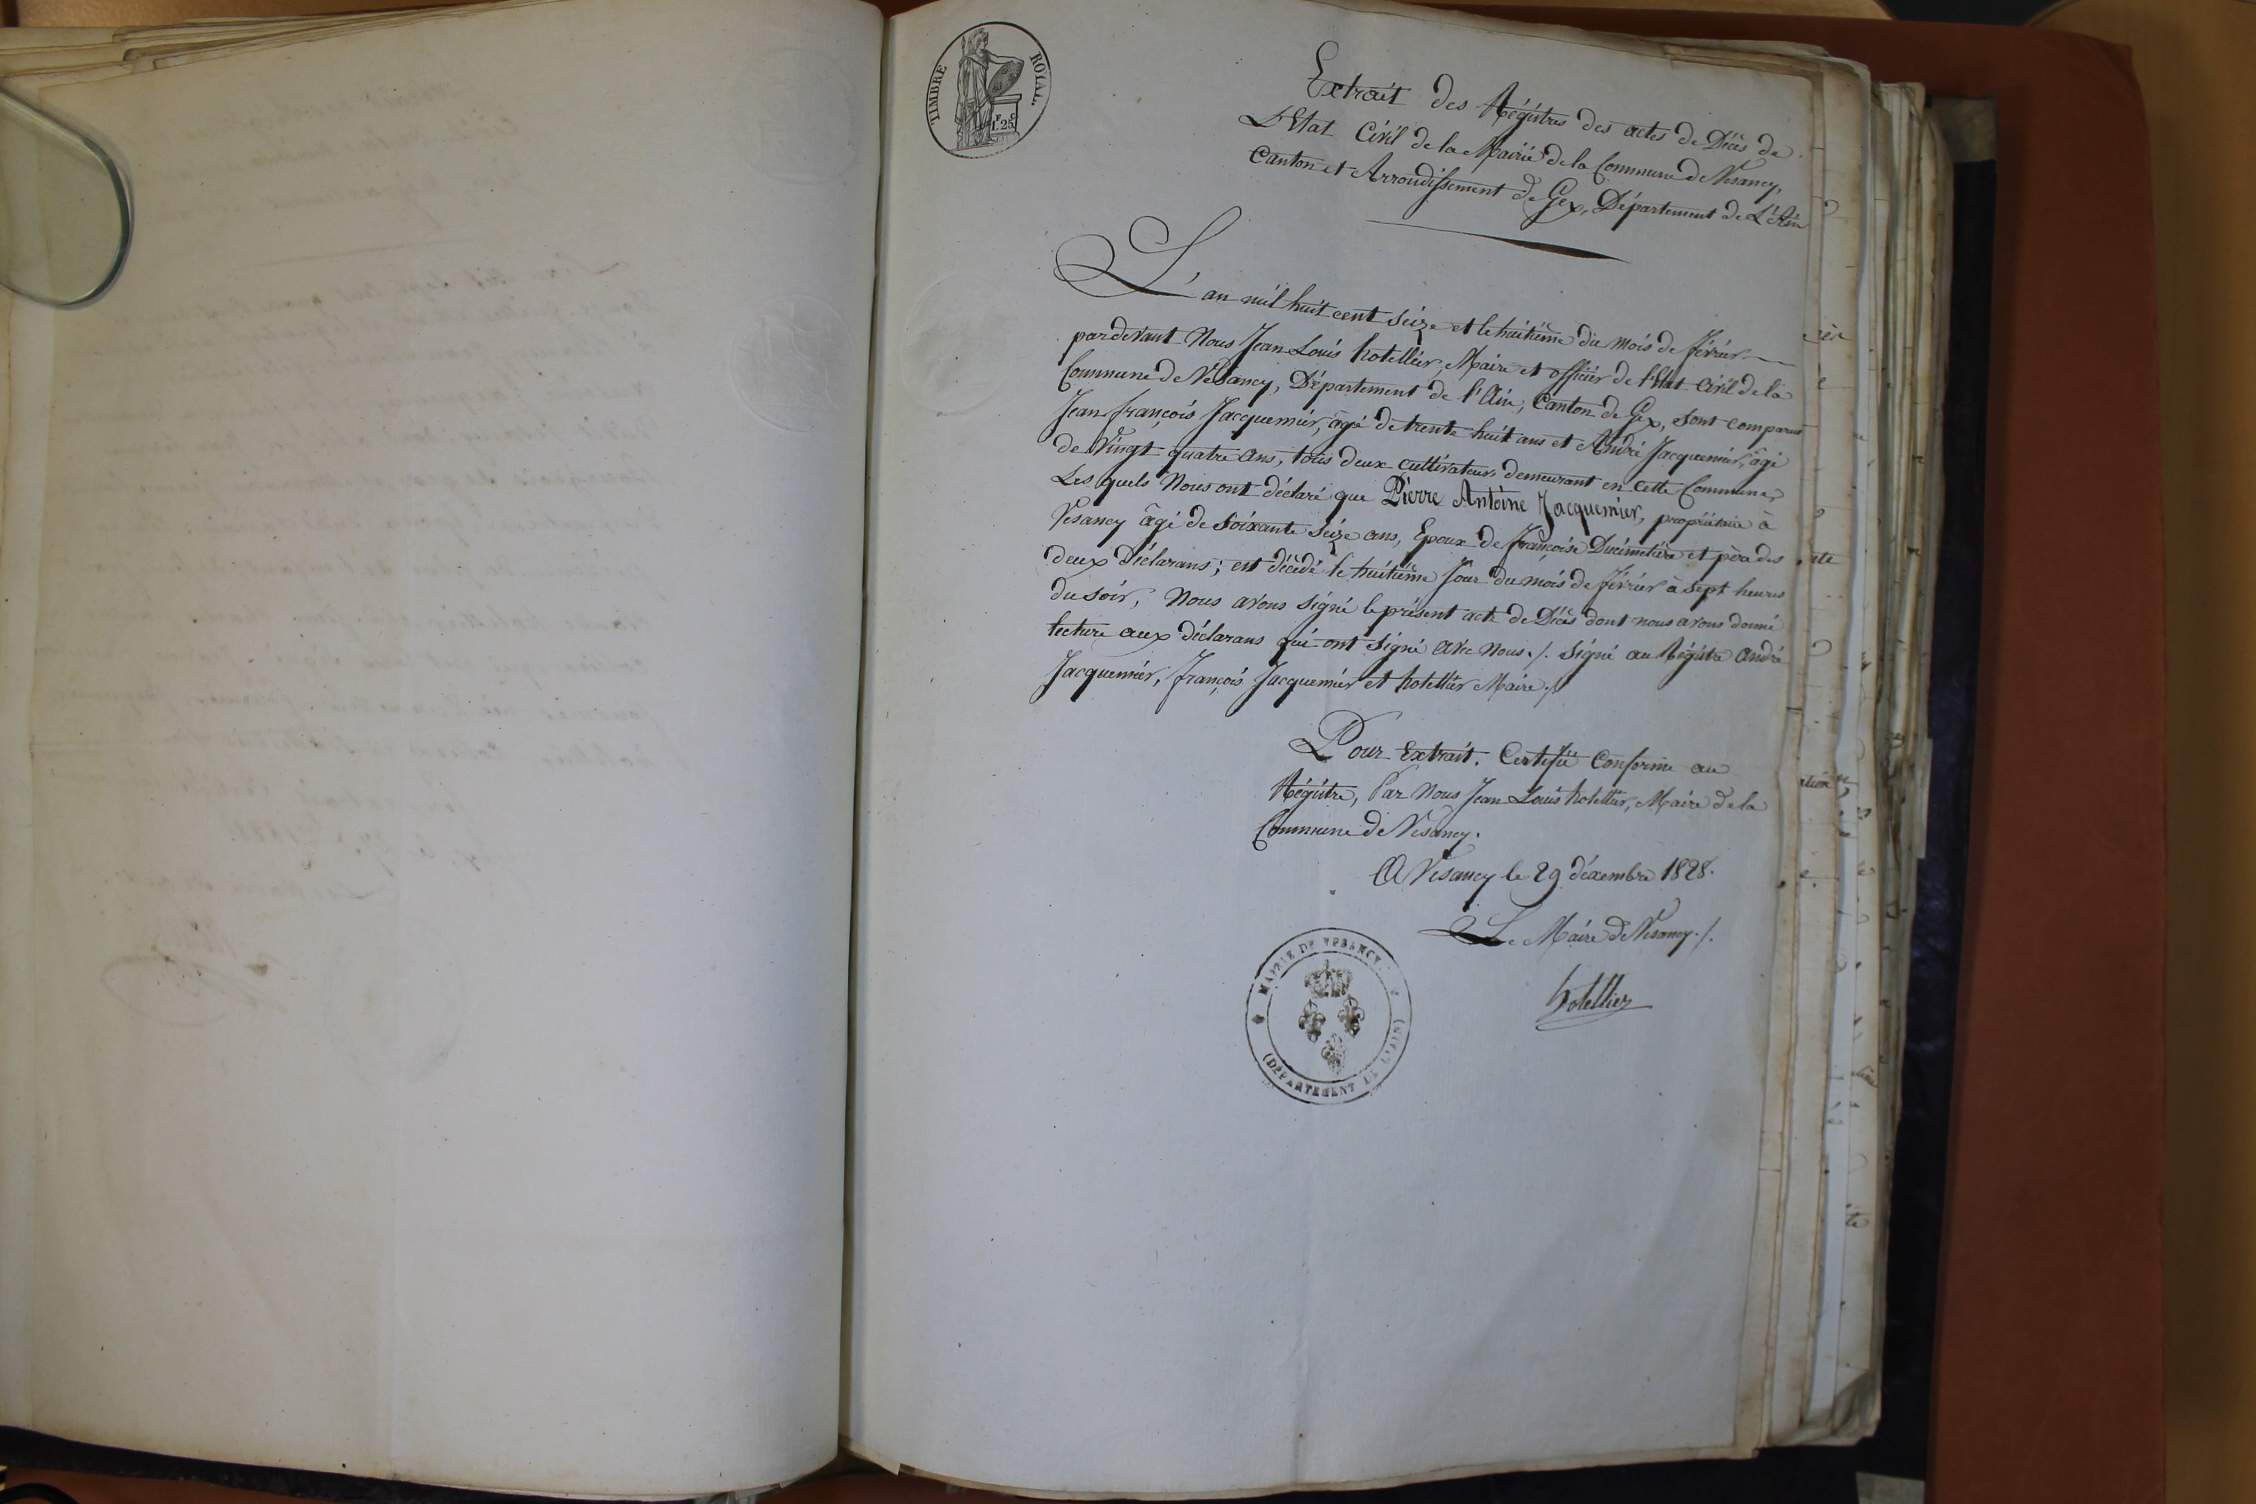 TIMBRE ROYAL
1.F 25.C
Extrait des Régistres des actes de Décès de
L'Etat Civil de la Mairie de la Commune de Vesancy,
Canton et Arrondissement de Gex, Département de L'Ain
L'an mil huit cent seize et le huitième du mois de février
pardevant Nous Jean Louis hotellier, Maire et officier de l'Etat Civil de la
Commune de Vesancy, Département de l'Ain, Canton de Gex, sont comparus
Jean françois Jacquemier, âgé de trente huit ans et André Jacquemier, âgé
de Vingt quatre ans, tous deux cultivateurs demeurant en cette Commune,
Les quels Nous ont déclaré que Pierre Antoine Jacquemier, propriétaire à
Vesancy âgé de soixante seize ans, Epoux de françoise Ducimetière et père des
deux Déclarans; est décédé le huitième Jour du mois de février à sept heures
du soir, Nous avons signé le présent acte de Décès dont nous avons donné
lecture aux déclarans qui ont signé avec nous ./. signé au Régistre André
Jacquemier, françois Jacquemier et hotellier Maire ./.
Pour Extrait. Certifié Conforme au
Régistre, Par Nous Jean Louis hotellier, Maire de la
Commune de Vesancy.
A Vesancy le 29 décembre 1828.
Le Maire de Vesancy ./.
hotellier
MAIRIE DE VESANCY
(DÉPARTEMENT DE L'AIN)